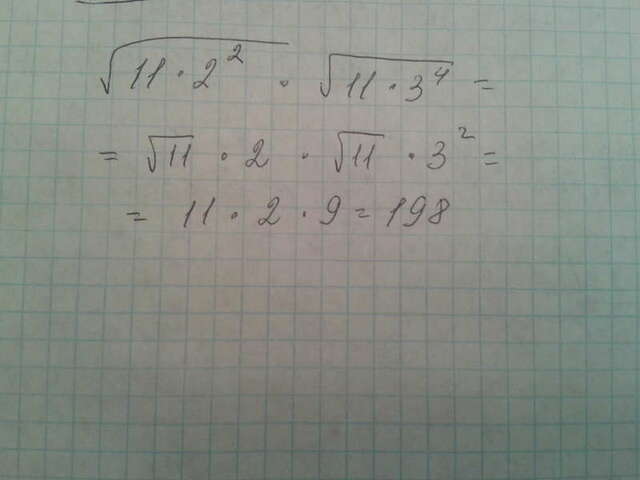 √(11·2²) · √(11·3⁴) =
= √11 · 2 · √11 · 3² =
= 11 · 2 · 9 = 198